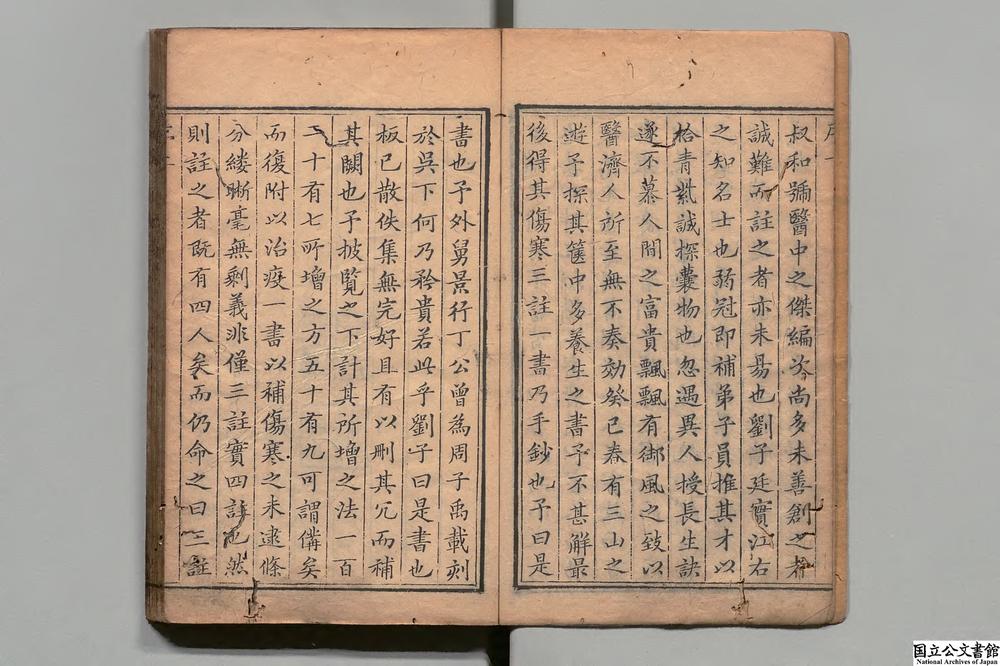 叔和號醫中之傑編次尚多未善創之者
誠難而註之者亦未易也劉子廷實江右
之知名士也弱冠即補弟子員推其才以
拾青紫誠探囊物也忽遇異人授長生訣
遂不慕人間之富貴飄飄有御風之致以
醫濟人所至無不奏効癸巳春有三山之
遊予探其篋中多養生之書予不甚解最
後得其傷寒三註一書乃手鈔也予曰是
書也予外舅景行丁公曾為周子禹載刻
於吳下何乃矜貴若此乎劉子曰是書也
板已散佚集無完好且有以刪其冗而補
其闕也予披覽之下計其所增之法一百
二十有七所增之方五十有九可謂備矣
而復附以治疫一書以補傷寒之未逮條
分縷晰毫無剩義非僅三註實四註也然
則註之者既有四人矣而仍命之曰三註
国立公文書館
National Archives of Japan